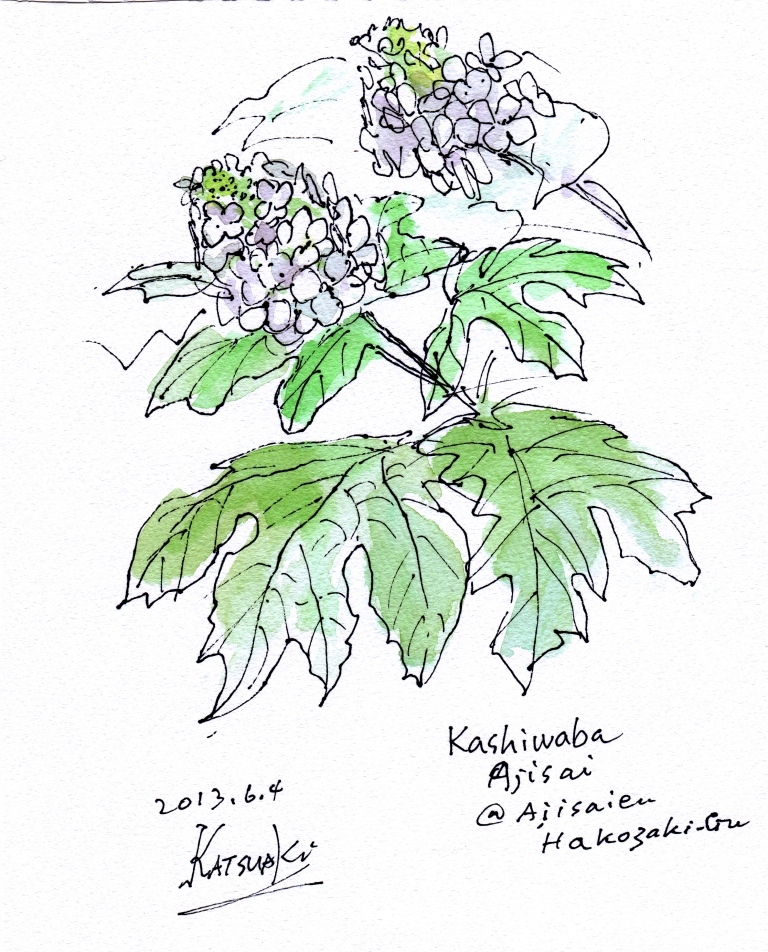 Kashiwaba
Ajisai
@ Ajisaien
Hakozaki-Gu
2013.6.4
KATSUAKI